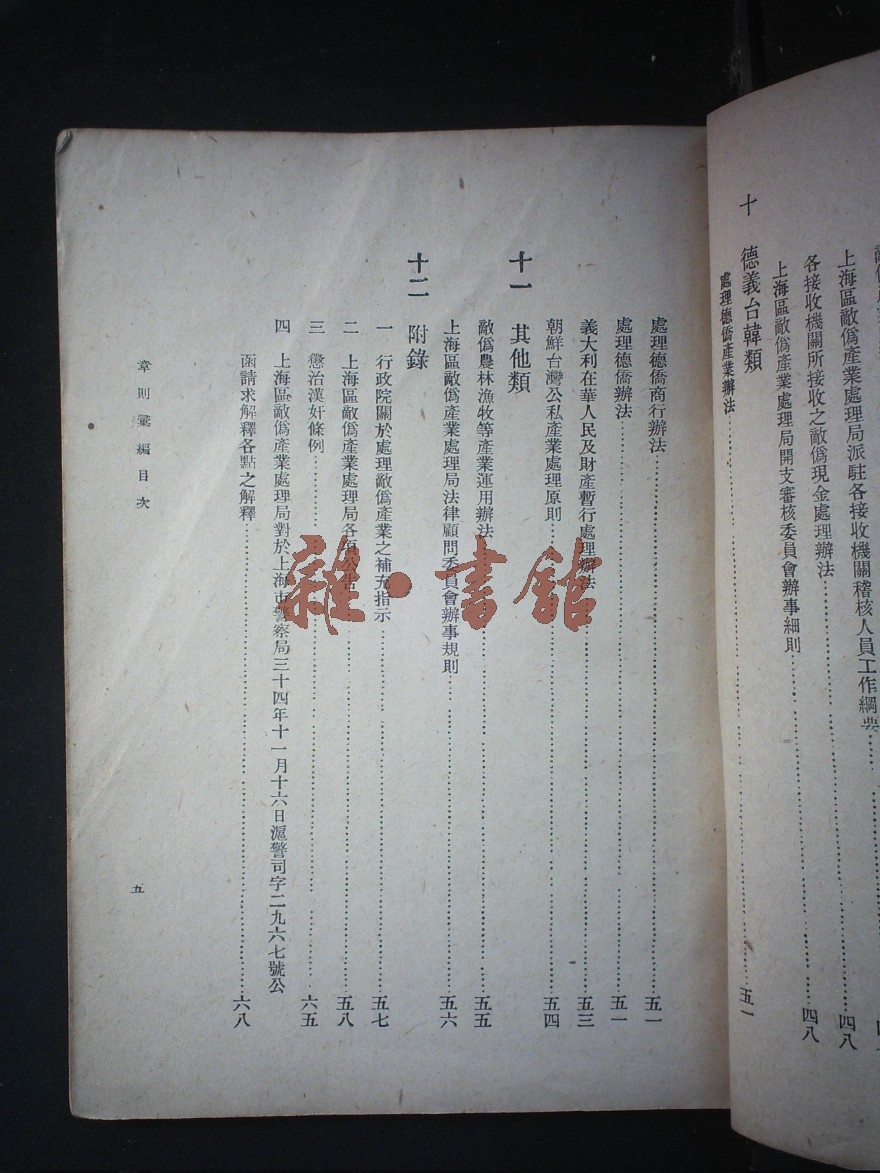 上海區敵僞產業處理局派駐各接收機關稽核人員工作綱要……四八
各接收機關所接收之敵僞現金處理辦法……四八
上海區敵僞產業處理局開支審核委員會辦事細則
十 德義台韓類
處理德僑產業辦法……五一
處理德僑商行辦法……五一
處理德僑辦法……五一
義大利在華人民及財產暫行處理辦法……五三
朝鮮台灣公私產業處理原則……五四
十一 其他類
敵僞農林漁牧等產業運用辦法……五五
上海區敵僞產業處理局法律顧問委員會辦事規則……五六
十二 附錄
一 行政院關於處理敵僞產業之補充指示……五七
二 上海區敵僞產業處理局各項公告……五八
三 懲治漢奸條例……六五
四 上海區敵僞產業處理局對於上海市警察局三十四年十一月十六日滬警司字二九六七號公
函請求解釋各點之解釋……六八
章則彙編目次
五
雜·書館